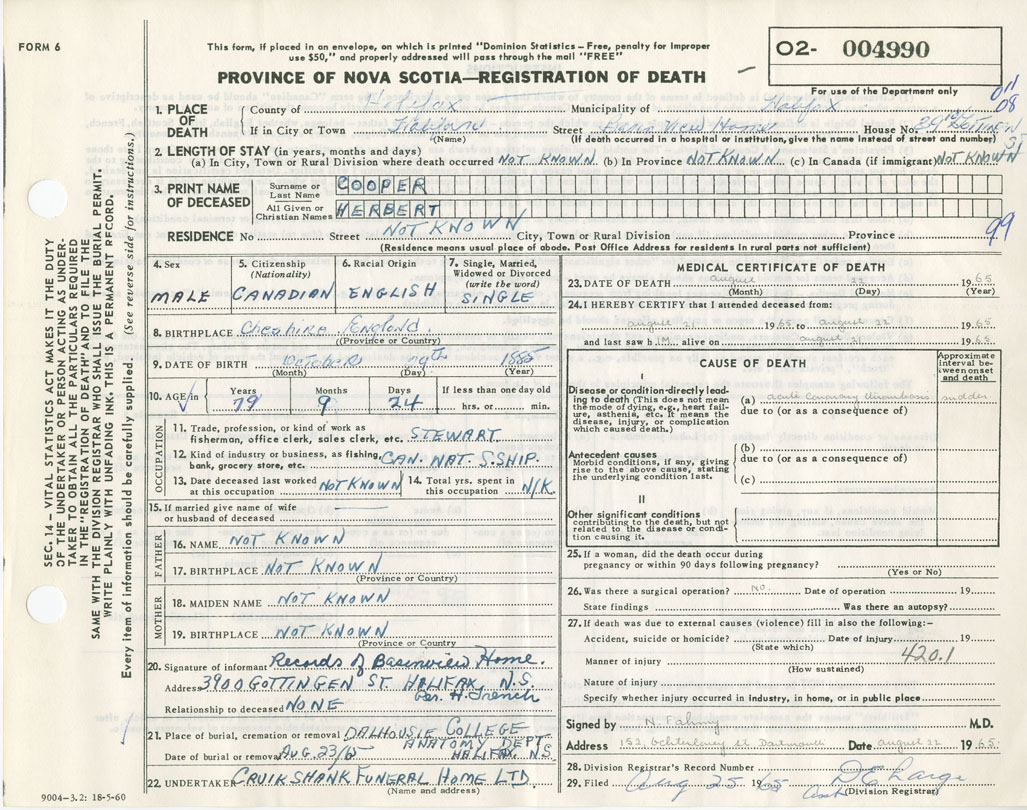 FORM 6
This form, if placed in an envelope, on which is printed "Dominion Statistics – Free, penalty for improper
use $50," and properly addressed will pass through the mail "FREE"
PROVINCE OF NOVA SCOTIA—REGISTRATION OF DEATH
O2- 004990
For use of the Department only
1. PLACE OF DEATH
County of Halifax Municipality of Halifax
If in City or Town Halifax Street Basin View Home House No.
(Name) (If death occurred in a hospital or institution, give the name instead of street and number)
08
2. LENGTH OF STAY (in years, months and days)
(a) In City, Town or Rural Division where death occurred NOT KNOWN (b) In Province NOT KNOWN (c) In Canada (if immigrant) NOT KNOWN
3. PRINT NAME OF DECEASED
Surname or Last Name COOPER
All Given or Christian Names HERBERT
RESIDENCE No Street NOT KNOWN City, Town or Rural Division Province
99
(Residence means usual place of abode. Post Office Address for residents in rural parts not sufficient)
4. Sex MALE
5. Citizenship (Nationality) CANADIAN
6. Racial Origin ENGLISH
7. Single, Married, Widowed or Divorced (write the word) SINGLE
8. BIRTHPLACE Cheshire, England.
(Province or Country)
9. DATE OF BIRTH October 29th 1885
(Month) (Day) (Year)
10. AGE in Years 79 Months 9 Days 24 If less than one day old hrs. or min.
OCCUPATION
11. Trade, profession, or kind of work as
fisherman, office clerk, sales clerk, etc. STEWART
12. Kind of industry or business, as fishing,
bank, grocery store, etc. CAN. NAT. S.SHIP.
13. Date deceased last worked
at this occupation NOT KNOWN
14. Total yrs. spent in
this occupation N/K.
15. If married give name of wife
or husband of deceased
FATHER
16. NAME NOT KNOWN
17. BIRTHPLACE NOT KNOWN
(Province or Country)
MOTHER
18. MAIDEN NAME NOT KNOWN
19. BIRTHPLACE NOT KNOWN
(Province or Country)
20. Signature of informant Records of Basinview Home.
Address 3900 GOTTINGEN ST. HALIFAX, N.S.
H. French
Relationship to deceased NONE
21. Place of burial, cremation or removal DALHOUSIE COLLEGE
ANATOMY DEPT.
Date of burial or removal AUG 23/65 HALIFAX, N.S.
22. UNDERTAKER CRUIKSHANK FUNERAL HOME LTD.
(Name and address)
9004–3.2: 18-5-60
SEC. 14 – VITAL STATISTICS ACT MAKES IT THE DUTY
OF THE UNDERTAKER OR PERSON ACTING AS UNDER-
TAKER TO OBTAIN ALL THE PARTICULARS REQUIRED
IN THE "REGISTRATION OF DEATH" AND TO FILE THE
SAME WITH THE DIVISION REGISTRAR WHO SHALL ISSUE THE BURIAL PERMIT.
WRITE PLAINLY WITH UNFADING INK. THIS IS A PERMANENT RECORD.
Every item of information should be carefully supplied. (See reverse side for instructions.)
MEDICAL CERTIFICATE OF DEATH
23. DATE OF DEATH August 22 1965
(Month) (Day) (Year)
24. I HEREBY CERTIFY that I attended deceased from:
august 21 1965 to august 22 1965
and last saw h IM alive on august 21 1965
CAUSE OF DEATH
Approximate interval between onset and death
I
Disease or condition directly lead-
ing to death (This does not mean
the mode of dying, e.g., heart fail-
ure, asthenia, etc. It means the
disease, injury, or complication
which caused death.)
(a) acute coronary thrombosis sudden
due to (or as a consequence of)
Antecedent causes
Morbid conditions, if any, giving
rise to the above cause, stating
the underlying condition last.
(b)
due to (or as a consequence of)
(c)
II
Other significant conditions
contributing to the death, but not
related to the disease or condi-
tion causing it.
25. If a woman, did the death occur during
pregnancy or within 90 days following pregnancy?
(Yes or No)
26. Was there a surgical operation? NO. Date of operation 19
State findings Was there an autopsy?
27. If death was due to external causes (violence) fill in also the following:–
Accident, suicide or homicide? Date of injury 19
(State which)
420.1
Manner of injury
(How sustained)
Nature of injury
Specify whether injury occurred in industry, in home, or in public place
Signed by N. Fahmy M.D.
Address 152, Ochterloney st Dartmouth Date august 22 1965
28. Division Registrar's Record Number
29. Filed Aug 25 1965
(Division Registrar)